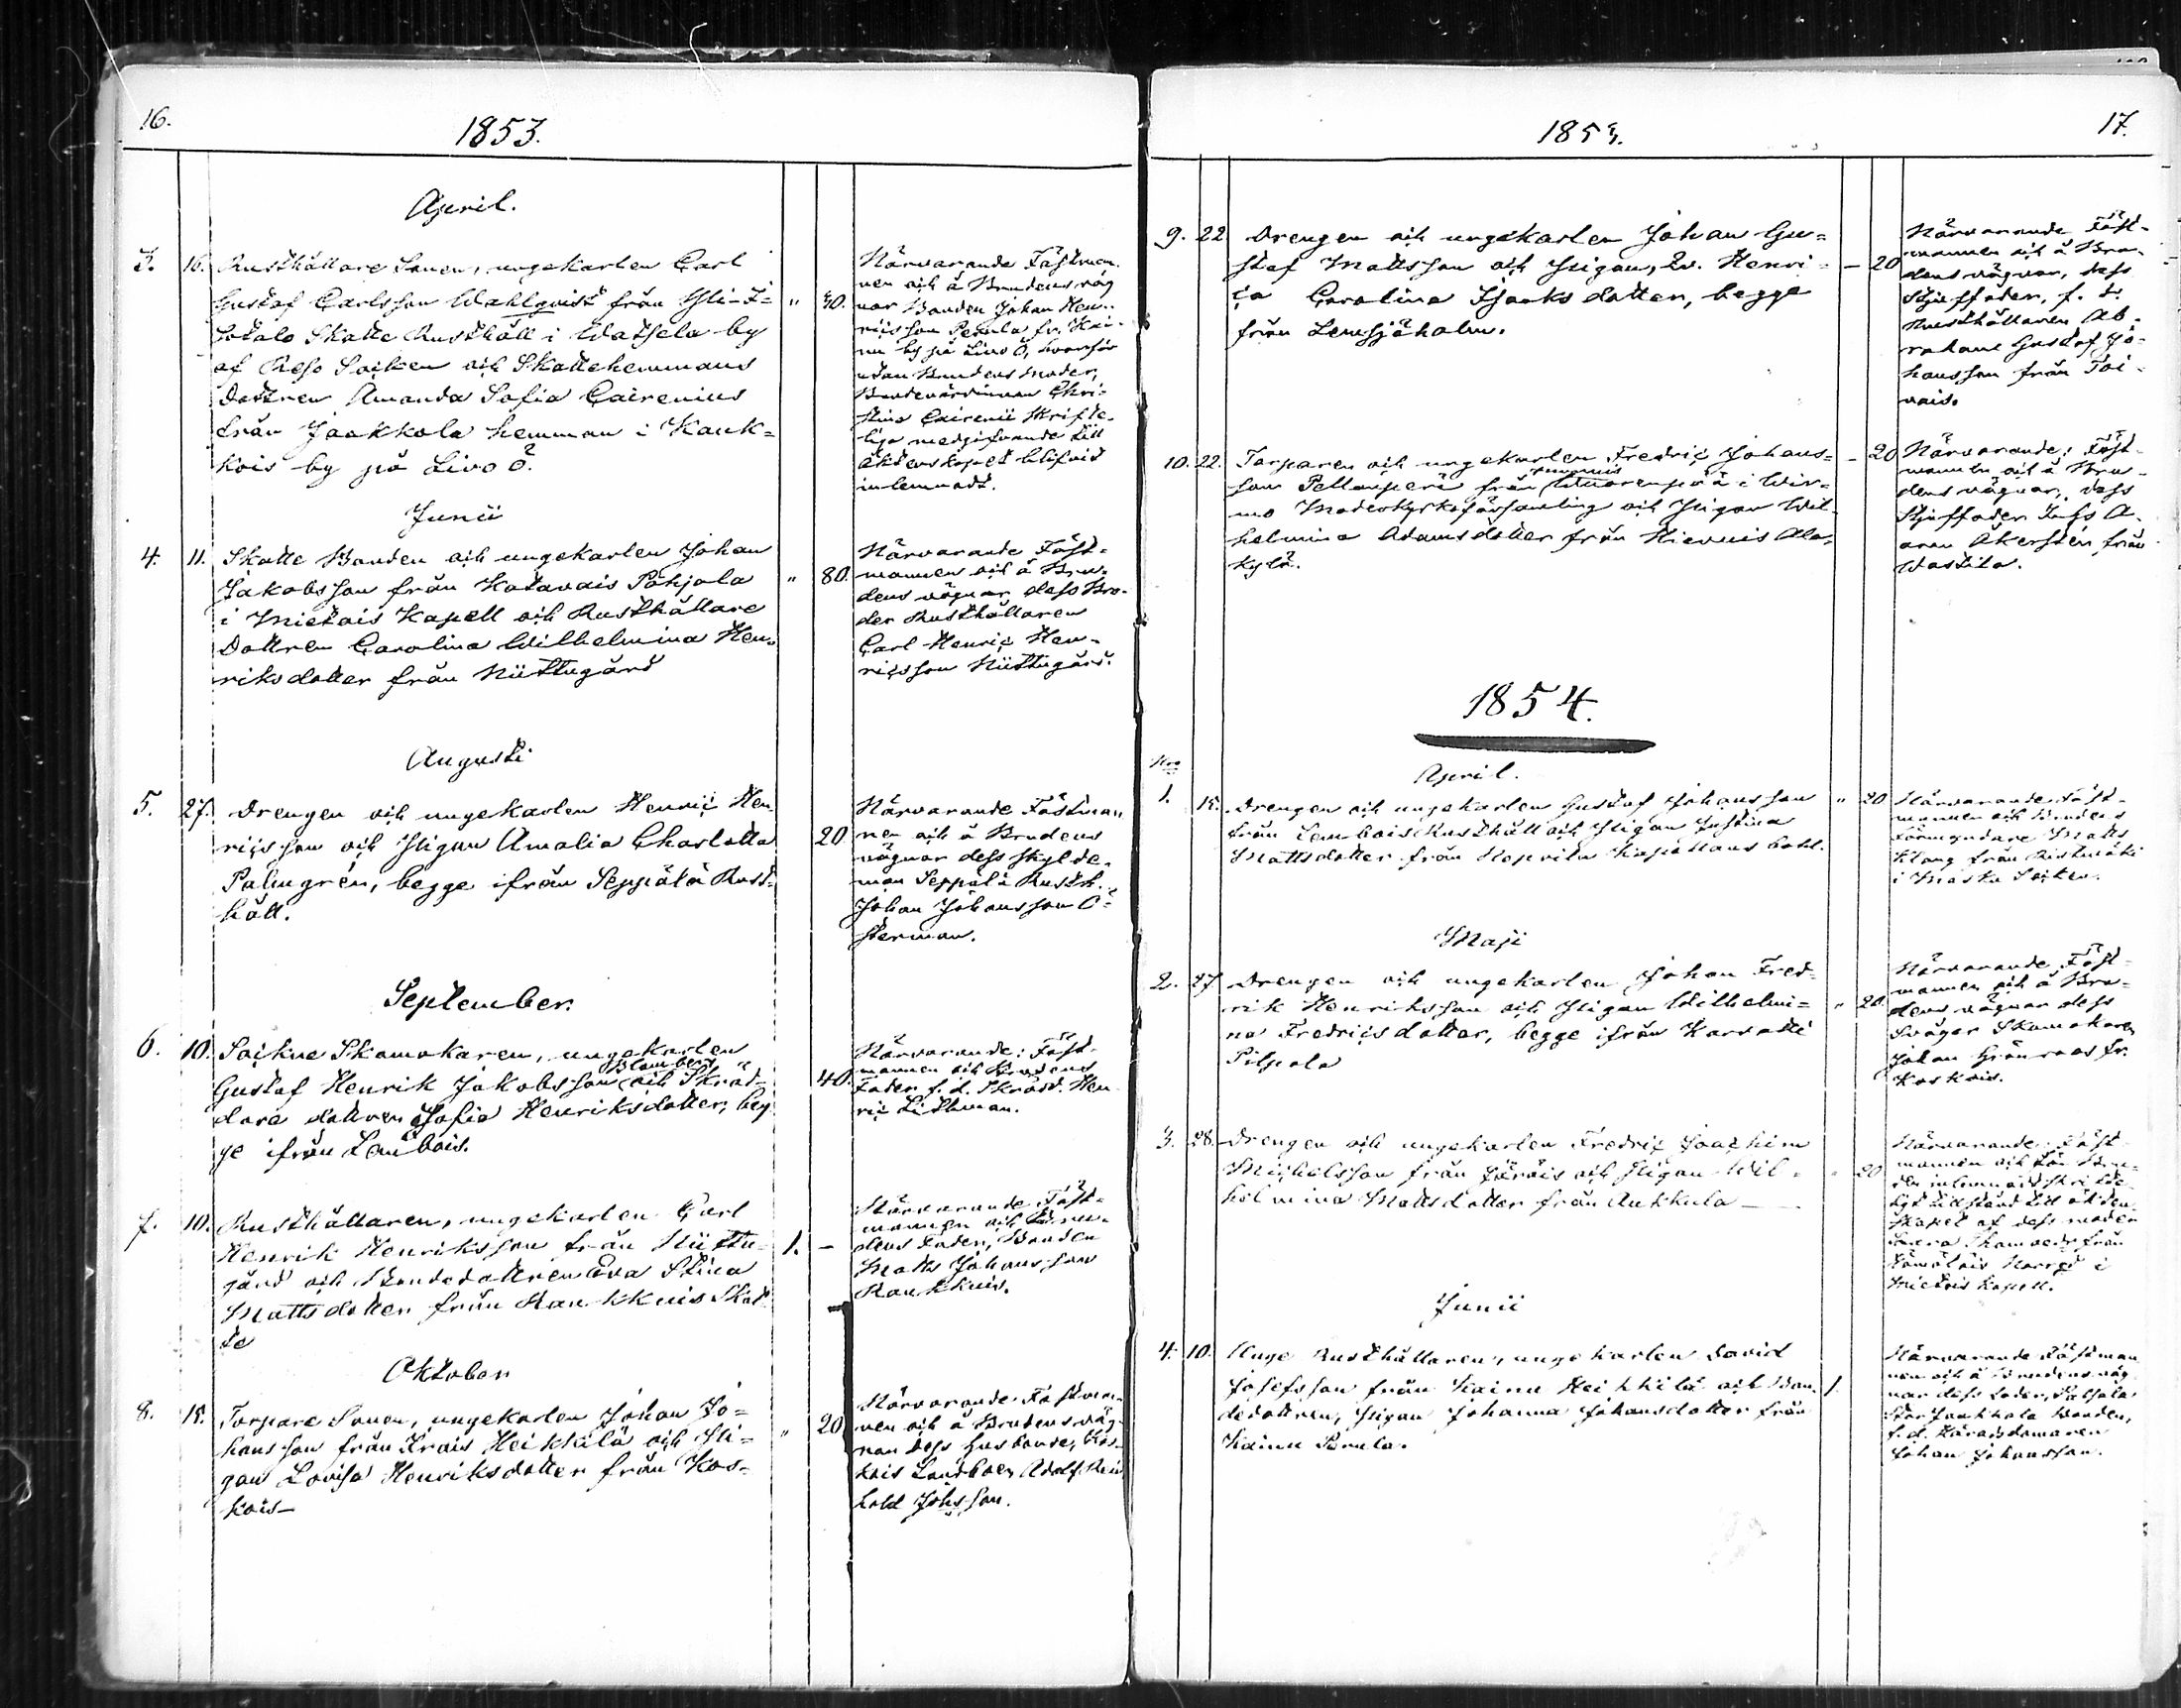 16.
1853.
April.
3. 16. Rusthållare Sonen, ungekarlen Carl
Gustaf Carlsson Wahlqvist från Yli-I-
sotalo Skatte Rusthåll i Watsela by
af Reso Socken och Skattehemmans
dottren Amanda Sofia Cairenius
från Jaakkola hemman i Kauk-
kois by på Livo Ö.
" 30.
Närvarande Fästman-
nen och å Brudens väg
nar Bonden Johan Hen-
ricsson Perula fr. Kai-
nu by på Livo Ö,
utan Brudens moder,
Bondevärdinnan Chri-
stina Cairenii skrifte-
liga medgifvande till
äktenskapet blifvid
inlemnadt.
Junii
4. 11. Skatte Bonden och ungekarlen Johan
Jakobsson från Katavais Pohjola
i Mietois Kapell och Rusthållare
Dottren Carolina Wilhelmina Hen-
riksdotter från Niittugård
" 80.
Närvarande Fäst-
mannen och å Bru-
dens vägnar dess Bro-
der Rusthållaren
Carl Henric Hen-
ricsson Niittugård.
Augusti
5. 27. Drengen och ungekarlen Henric Hen-
ricsson och Pigan Amalia Charlotta
Palmgrén, begge ifrån Seppälä Rust-
håll.
20
Närvarande Fästman
nen och å Brudens
vägnar dess skylde-
man Seppälä Rusth.
Johan Johansson Ö-
sterman.
September.
6. 10. Sockne Skomakaren, ungekarlen
Gustaf Henrik Jakobsson Blomberg och Skräd-
dare dottren Sofia Henriksdotter, beg
ge ifrån Lembois.
40.
Närvarande: Fäst-
mannen och Brudens
Fader f.d. Skrädd. Hen
ric Lithman.
7. 10. Rusthållaren, ungekarlen Carl
Henrik Henriksson från Niittu-
gård och Bondedottren Eva Stina
Mattsdotter från Raukkuis Skat-
te
1. –
Närvarande: Fäst-
mannen och Bru-
dens Fader, Bonden
Matts Johansson
Raukkuis.
Oktober
8. 15. Torpare Sonen, ungekarlen Johan Jo-
hansson från Krais Heikkilä och Pi-
gan Lovisa Henriksdotter från Kos-
kois
" 20
Närvarande: Fästman-
nen och å Brudens väg-
nar dess husbonde, Kos-
kois Landboen Adolf Rein
hold Johsson.
1853.
17.
9. 22 Drengen och ungekarlen Johan Gu-
staf Mattsson och Pigan, Qv. Henri-
ca Carolina Isaaksdotter, begge
från Lemsjöholm.
– 20
Närvarande Fäst-
mannen och å Bru-
dens vägnar, dess
Styffader, f. d.
Rusthållaren Ab-
raham Gustaf Jo-
hansson från Toi-
vais.
10. 22. Torparen och ungekarlen Fredric Johans-
son Pellonperä från Wuorenpää i Wir-
mo Moderkyrkoförsamling och Pigan Wil-
helmina Adamsdotter från Hievuis Ala-
kylä.
– 20
Närvarande: Fäst-
mannen och å Bru-
dens vägnar, dess
Styffader Inhs A-
aron Åkersten från
Wastila.
1854.
Nro
April.
1. 15. Drengen och ungekarlen Gustaf Johansson
från Lembois Rusthåll och Pigan Justina
Mattsdotter från Kapellans bohl.
" 20
Närvarande Fäst-
mannen och Brudens
Förmyndare Matts
Klang från Ristimäki
i Masku Socken.
Maji
2. 27 Drengen och ungekarlen Johan Fred-
rik Henriksson och Pigan Wilhelmi-
na Fredricsdotter, begge ifrån Karvatti
Pilpola
" 20.
Närvarande: Fäst-
mannen och å Bru-
dens vägnar dess
Svåger Skomakaren
Johan Grönroos fr.
Koskois.
3. 28. Drengen och ungekarlen Fredric Joachim
Michelsson från Järäis och Pigan Wil-
helmina Mattsdotter från Aukkula
" 20
Närvarande: Fäst-
mannen och för Bru-
den inlemnadt skrifte-
ligt tillstånd till äkten-
skapet af dess moder
från
i
Mietois Kapell.
Junii
4. 10. Unge Rusthållaren, ungekarlen David
Josefsson från Kainu Heikkilä och Bon-
dedottren, Pigan Johanna Johansdotter från
Kainu Perula.
1.
Närvarande Fästman
nen och å Brudens väg-
nar dess Fader,
Stor Jaakkola Bonden,
f.d. Häradsdomaren
Johan Johansson.